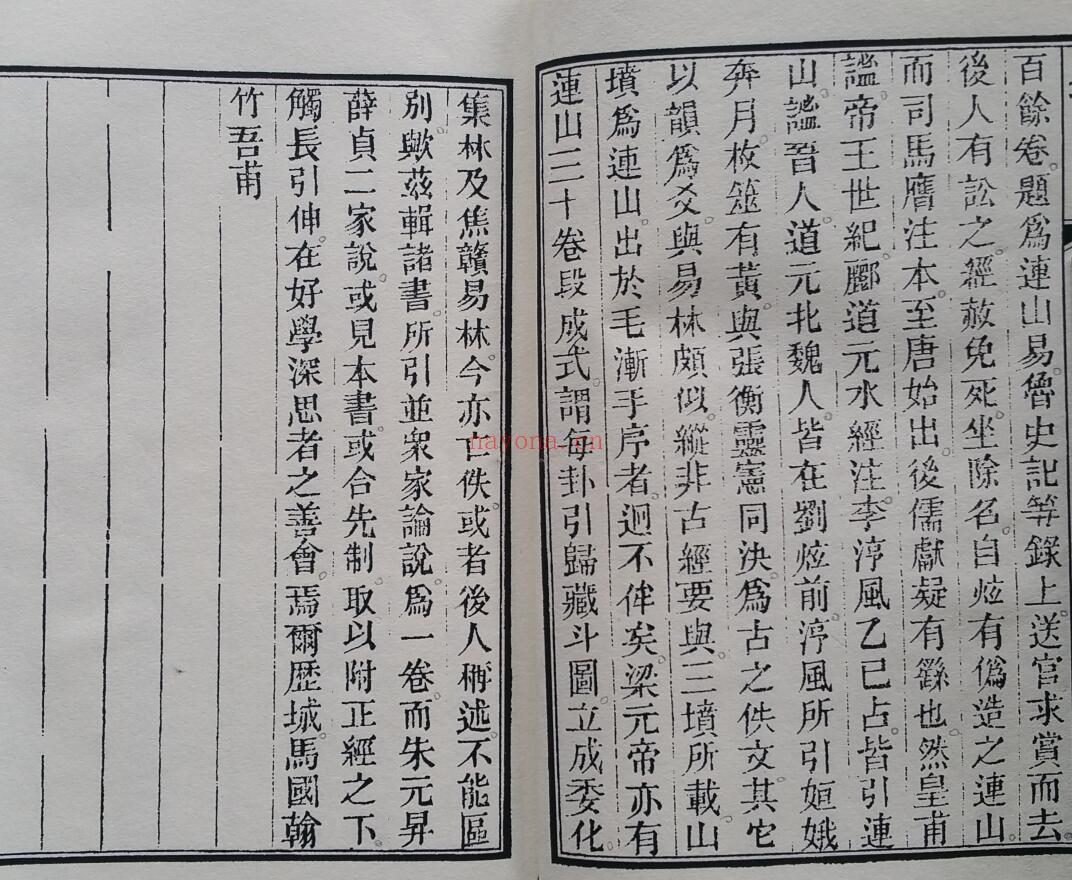 百餘卷。題爲連山易。魯史記等錄上。送官求賞而去。
後人有訟之。經赦免死。坐除名。自炫有僞造之連山。
而司馬膺注本。至唐始出。後儒獻疑有繇也。然皇甫
謐帝王世紀。酈道元水經注。李淳風乙巳占。皆引連
山。謐晉人。道元北魏人。皆在劉炫前。淳風所引姮娥
奔月。枚筮有黃。與張衡靈憲同。決爲古之佚文。其它
以韻爲爻。與易林頗似。縱非古經。要與三墳所載山
墳爲連山。出於毛漸手序者。迥不侔矣。梁元帝亦有
連山三十卷。段成式謂每卦引歸藏斗圖。立成委化。
集林及焦贛易林。今亦亡佚。或者後人稱述。不能區
別歟。茲輯諸書所引。並衆家論說。爲一卷。而朱元昇
薛貞二家說。或見本書。或合先制。取以附正經之下。
觸長引伸。在好學深思者之善會焉爾。歷城馬國翰
竹吾甫
nayona.cn